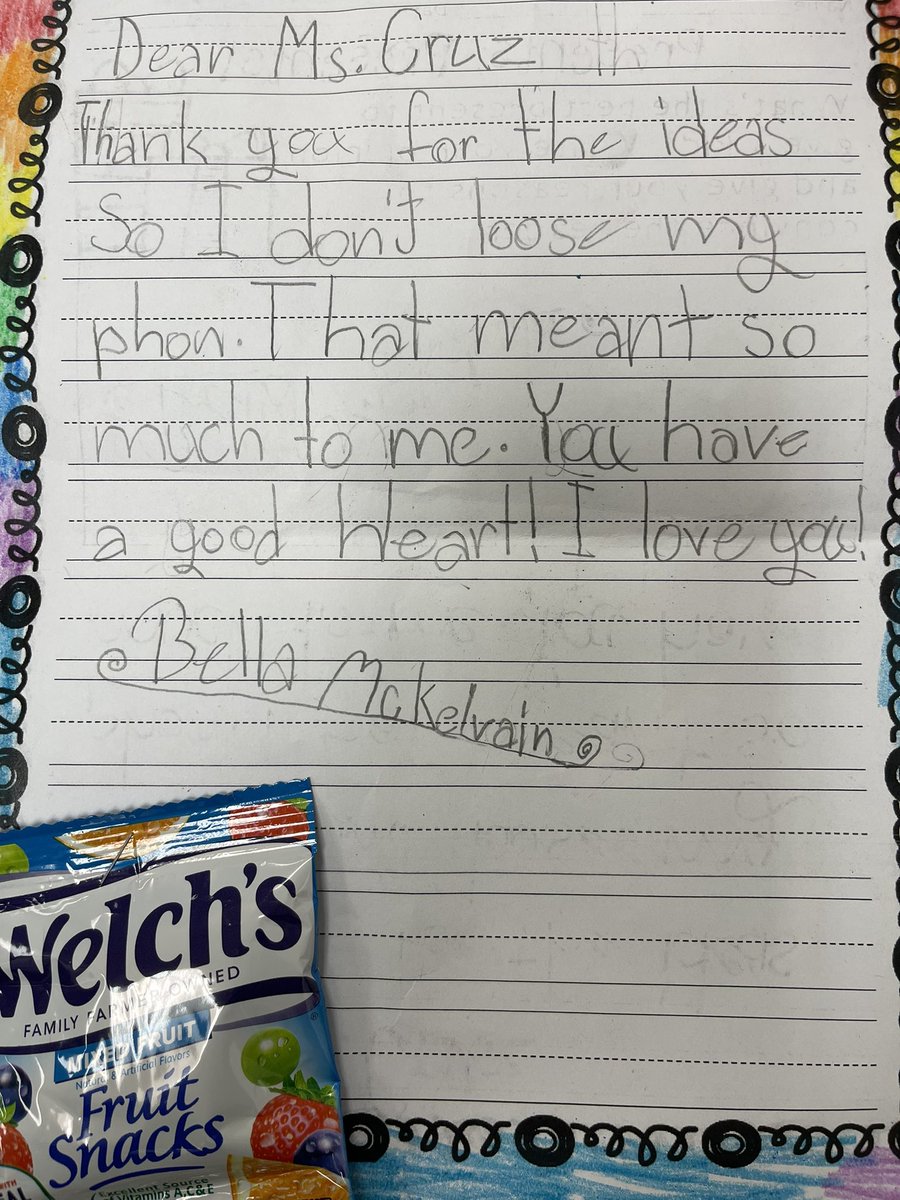 Dear Ms. Cruz
Thank you for the ideas
So I don't loose my
phon. That meant so
much to me. You have
a good heart! I love you!
Bella McKelvain
Welch's
FAMILY FARMER OWNED
®
MIXED FRUIT
Natural & Artificial Flavors
Fruit
Snacks
Excellent Source
Vitamins A, C & E